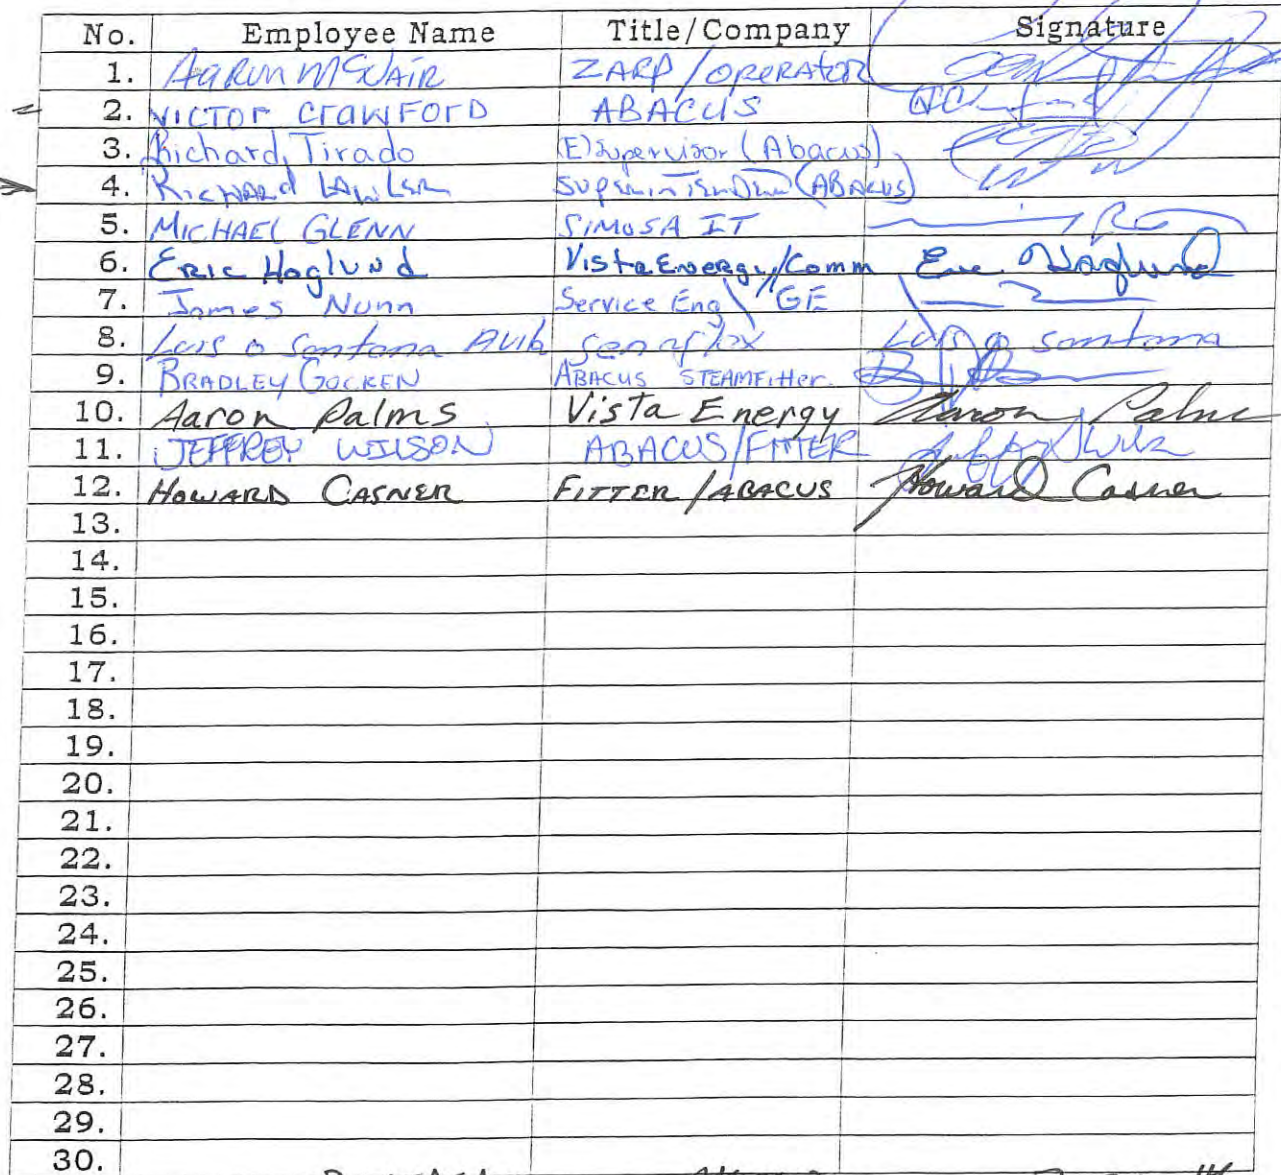 No. Employee Name Title/Company Signature
1. Aaron McNair ZARP/OPERATOR
2. VICTOR CrawForD ABACUS
3. Richard Tirado (E)Supervisor (Abacus)
4. Richard Lawler Superintendent (ABACUS)
5. MICHAEL GLENN SIMOSA IT
6. Eric Hoglund Vista Energy/Comm Eric Hoglund
7. James Nunn Service Eng GE
8. Luis o Santana Luis o santana
9. BRADLEY GOCKEN ABACUS STEAMFitter
10. Aaron Palms Vista Energy Aaron Palms
11. JEFFREY WILSON ABACUS/FITTER
12. HOWARD CASNER FITTER/ABACUS Howard Casner
13.
14.
15.
16.
17.
18.
19.
20.
21.
22.
23.
24.
25.
26.
27.
28.
29.
30.